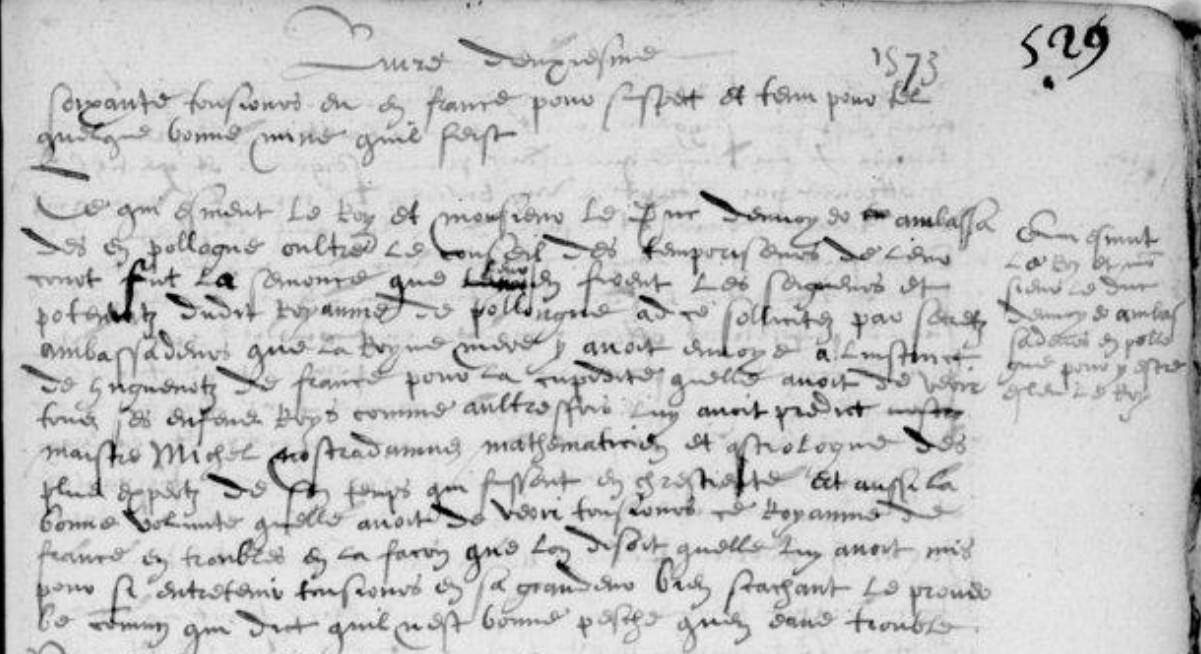 Livre deuxiesme 1573 529
soixante tousiours eu en france pour suspect et tenu pour tel
quelque bonne mine quil feist
Ce qui esmeut le Roy et monsieur le Duc denvoyer ambassa
des en pollogne oultre le conseil des temporiseurs de leur
court fut la semonce que leur en firent les seigneurs et
potentatz dudit Royaume de pollongne ad ce sollicitez par secretz
ambassadeurs que la Royne mere y avoit envoye a linstance
de huguenotz de france pour la cupidite quelle avoit de veoir
tous ses enfens Roys comme aultresfois luy avoit predict
maistre Michel nostradamus mathematicien et astrologue des
plus expertz de son temps qui fussent en chrestiente Et aussi la
bonne volunte quelle avoit de veoir tousiours ce Royaume de
france en troubles en la facon que lon disoit quelle luy avoit mis
pour si entretenir tousiours en sa grandeur bien scachant le prover
be commun qui dict quil nest bonne pesche quen eaue trouble
Qui esmeut
le Roy et mon
sieur le duc
denvoyer ambas
sadeurs en pollo
gne pour y estre
esleu le Roy